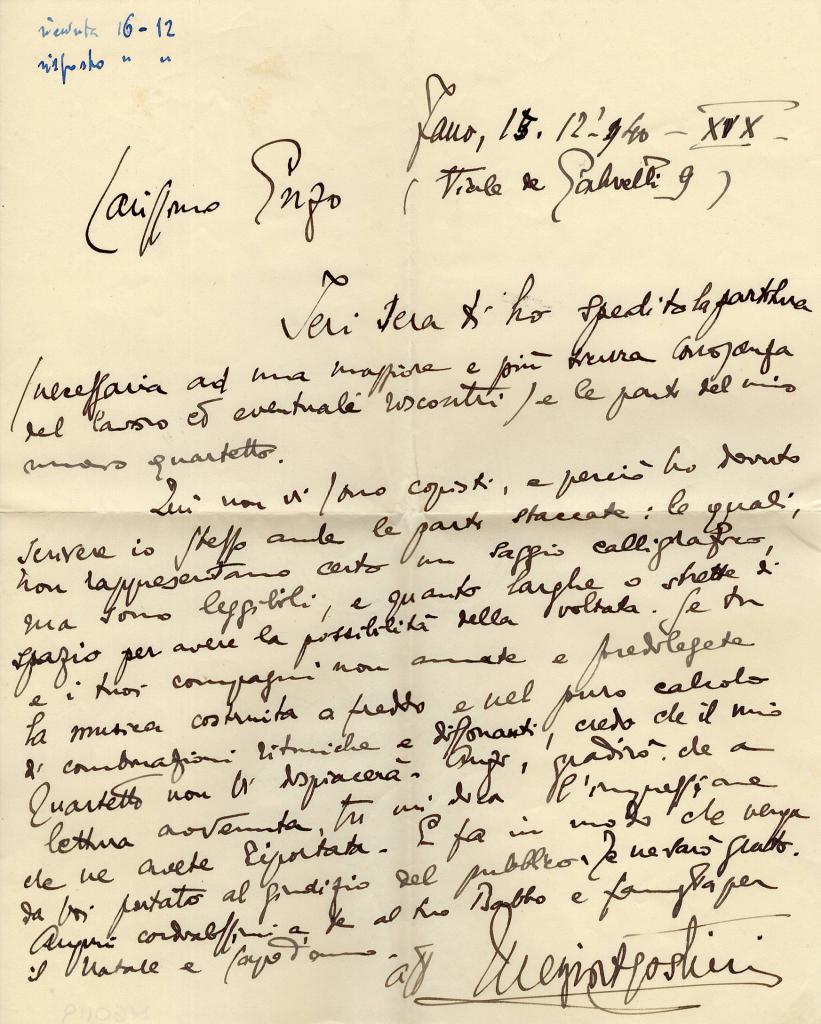 ricevuta 16-12
risposto " "
Fano, 15. 12. 940 - XIX -
Carissimo Enzo
( Viale de 9 )
Ieri sera ti ho spedito la partitura
(necessaria ad una maggiore e più sicura conoscenza
del lavoro ed eventuale riscontri) e le parti del mio
nuovo quartetto.
Qui non vi sono copisti, e perciò ho dovuto
scrivere io stesso anche le parti staccate: le quali,
non rappresentano certo un saggio calligrafico,
ma sono leggibili, e quanto larghe o strette di
spazio per avere la possibilità della voltata. Se tu
e i tuoi compagni non amate e prediligete
la musica costruita a freddo e nel puro calcolo
di combinazioni ritmiche e dissonanti, credo che il mio
Quartetto non vi dispiacerà. Anzi, gradirò che a
lettura avvenuta, tu mi dica l'impressione
che ne avete riportata. E fa in modo che venga
da voi portato al giudizio del pubblico. Te ne sarò grato.
Auguri cordialissimi a te al tuo Babbo e famiglia per
il Natale e Capo d'anno.
aff Mezio Agostini